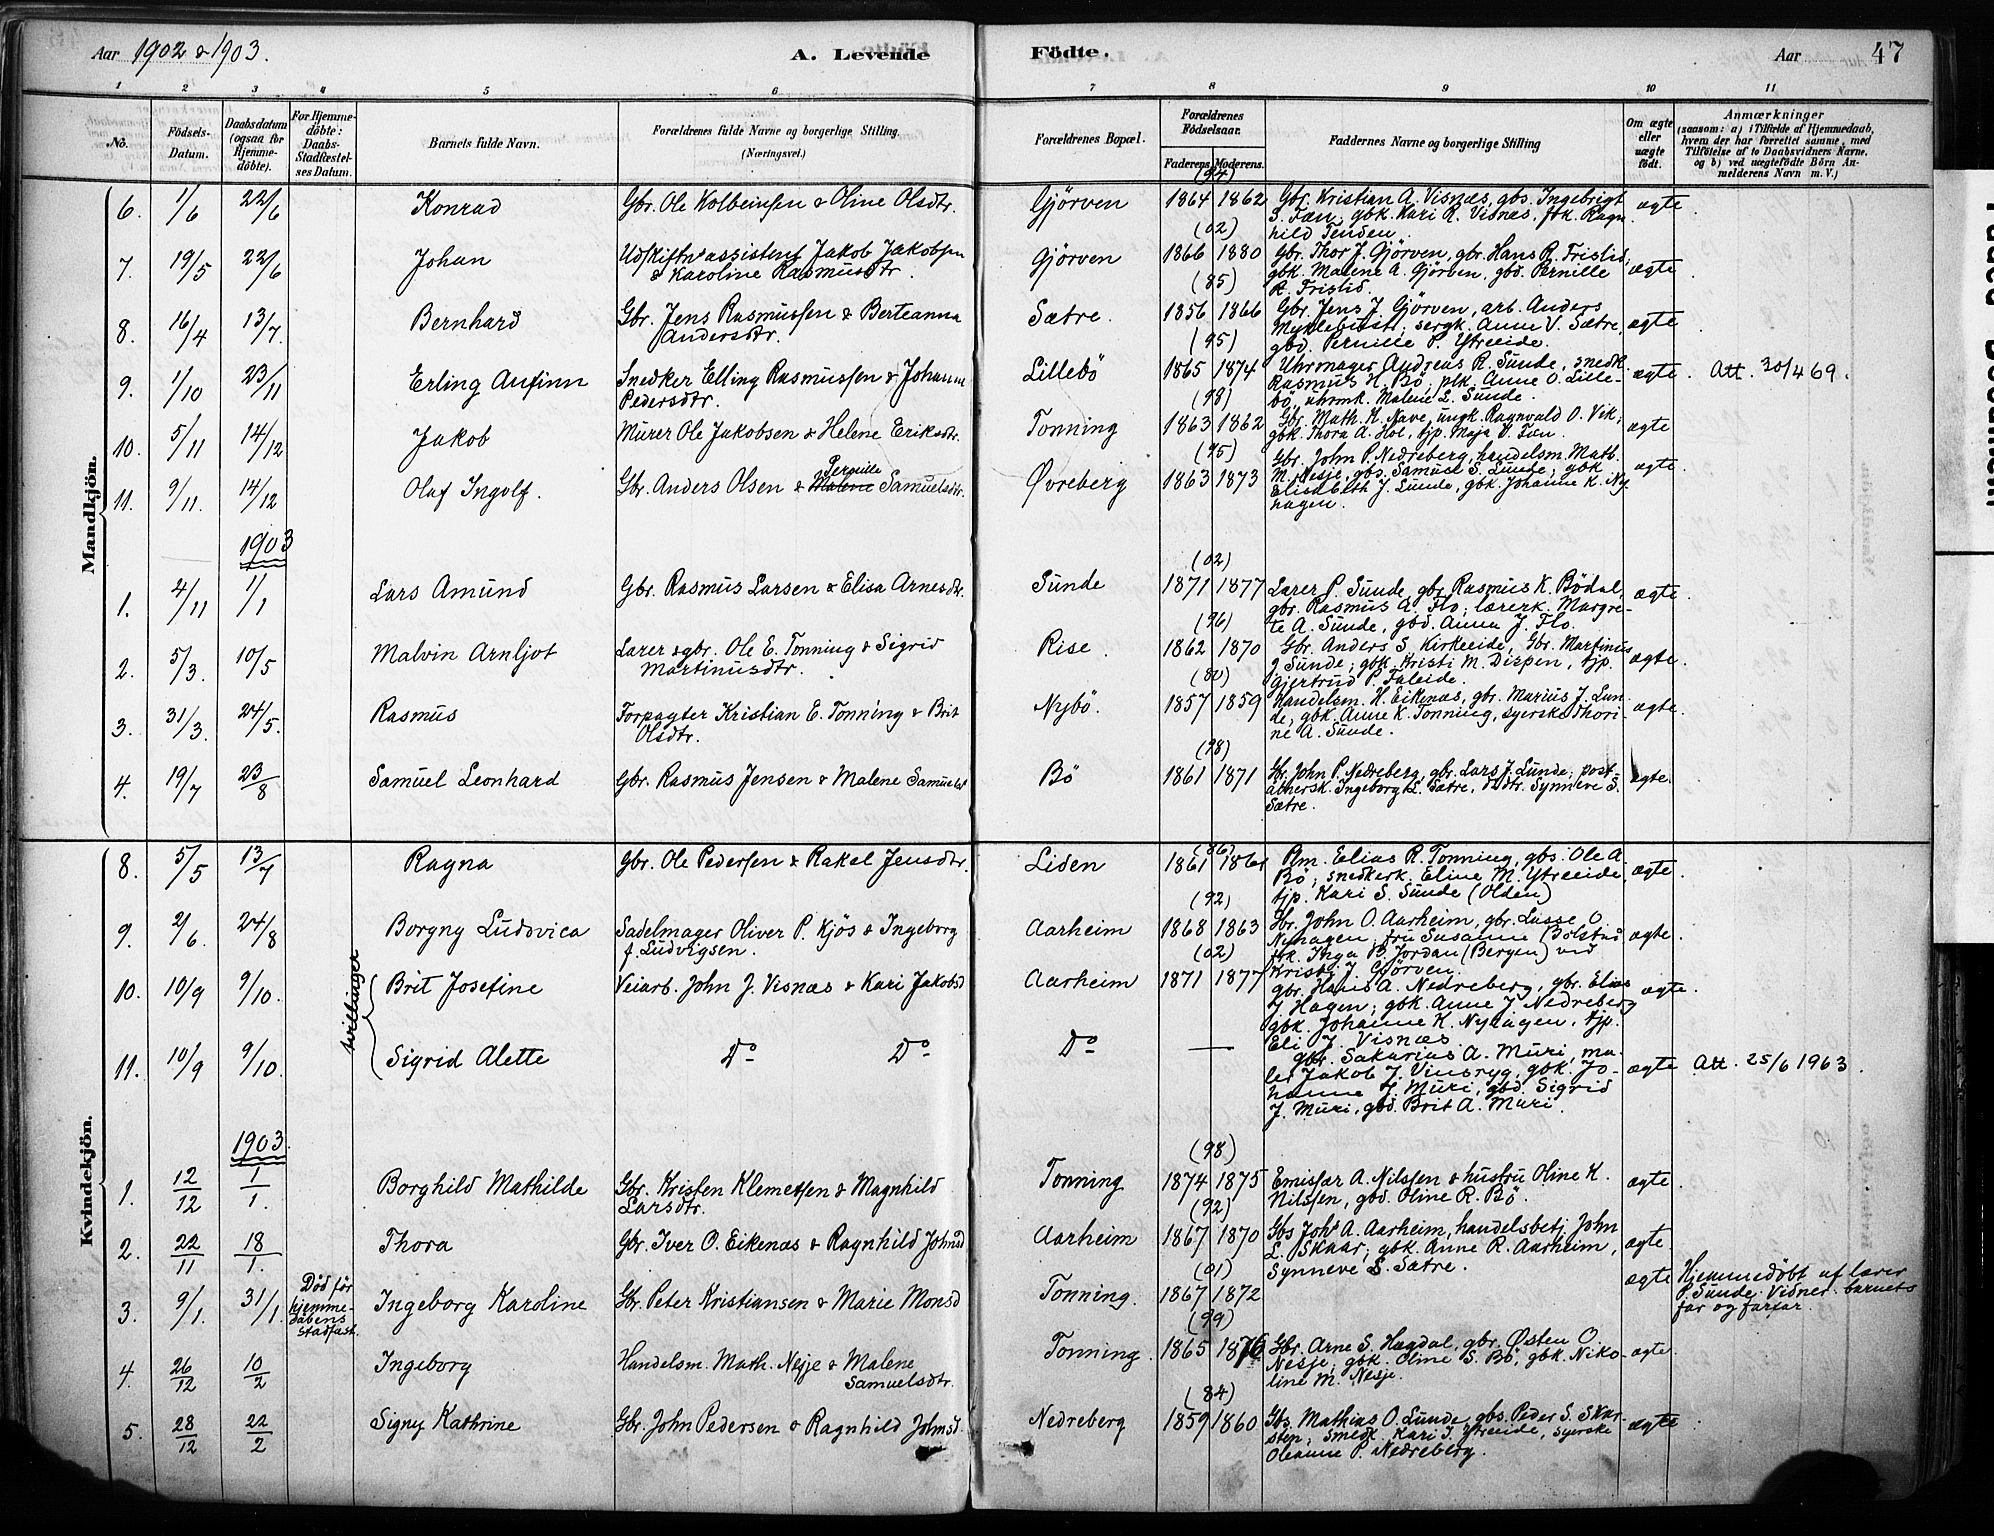 Aar 1902 & 1903.
A. Levende
Födte.
Aar
47
1 2 3 4 5 6 7 8 9 10 11
No.
Födsels-Datum.
Daabsdatum (ogsaa for Hjemme-döbte).
For Hjemme-döbte: Daabs-Stadfæstel-ses Datum.
Barnets fulde Navn.
Forældrenes fulde Navne og borgerlige Stilling.
(Næringsvei.)
Forældrenes Bopæl.
Forældrenes Födselsaar.
Faderens. Moderens.
Faddernes Navne og borgerlige Stilling
Om ægte eller uægte født.
Anmærkninger
(saasom: a) i Tilfælde af Hjemmedaab, hvem der har forrettet samme, med Tilföielse af to Daabsvidners Navne, og b) ved uægtefödte Börn An-melderens Navn m. V.)
Mandkjön.
6. 1/6 22/6 Konrad Gbr. Ole Kolbeinsen & Oline Olsdtr. Gjörven (94) 1864 1862 Gbr. Kristian A. Visnæs, gbs. Ingebrigt
S. Fæn; gbk. Kari R. Visnæs, fbk. Ragn-
hild Tenden. ægte.
7. 19/5 22/6 Johan Udskiftn's assistent Jakob Jakobsen
& Karoline Rasmusdtr. Gjörven (02) 1866 1880 Gbr. Thor J. Gjörven, gbr. Hans R. Frislid,
gbk. Malene A. Gjörven, gbd. Pernille
R. Frislid. ægte
8. 16/4 13/7 Bernhard Gbr. Jens Rasmussen & Berteanna
Andersdtr. Sætre. (85) 1856 1866 Gbr. Jens J. Gjörven, arb. Anders
Myklebust; sergk. Anne V. Sætre,
gbd. Pernille P. Ytreeide. ægte
9. 1/10 23/11 Erling Anfinn Snedker Elling Rasmussen & Johanne
Pedersdtr. Lillebö (95) 1865 1874 Uhrmager Andreas R. Sunde, snedk.
Rasmus N. Bö; plk. Anne O. Lille-
bö, uhrmk. Malene L. Sunde. ægte. Att. 30/4 69.
10. 5/11 14/12 Jakob Murer Ole Jakobsen & Helene Eriksdtr. Tonning (98) 1863 1862 Gbr. Math. K. Nave, ungk. Ragnvald O. Vik;
gbk. Thora A. Hol, tjp. Maja V. Fæn. ægte
11. 9/11. 14/12 Olaf Ingolf. Gbr. Anders Olsen & Malene Pernille Samuelsdtr. Øvreberg (95) 1863 1873 Gbr. John P. Nedreberg, handelsm. Math.
M. Nesje, gbs. Samuel S. Lunde; gbk.
Elisabeth J. Lunde, gbk. Johanne K. Ny-
hagen. ægte.
1903
1. 4/11 1/1 Lars Amund Gbr. Rasmus Larsen & Elisa Arnesdtr. Sunde (02) 1871 1877 Lærer P. Sunde, gbr. Rasmus K. Bödal,
gbr. Rasmus A. Flo; lærerk. Margre-
te A. Sunde, gbd. Anna J. Flo. ægte.
2. 5/3. 10/5 Malvin Arnljot Lærer & gbr. Ole E. Tonning & Sigrid
Martinusdtr. Rise. (96) 1862 1870 Gbr. Anders S. Kirkeeide, Gbr. Martinus
J Sunde; gbk. Kristi M. Dispen, tjp.
Gjertrud P. Faleide. ægte.
3. 31/3. 24/5. Rasmus Forpagter Kristian E. Tonning & Brit
Olsdtr. Nybö. (80) 1857 1859 Handelsm. H. Eikenæs, gbr. Marius J. Lun-
de, gbk. Anne K. Tonning, syerske Thori-
ne A. Sunde. ægte.
4. 19/7 23/8 Samuel Leonhard Gbr. Rasmus Jensen & Malene Samuelsd Bö (98) 1861 1871 Gbr. John P. Nedreberg, gbr. Lars J. Lunde; post-
aabnersk. Ingeborg L. Sætre, Synneve S.
Sætre. ægte.
Kvindekjön.
8. 5/5 13/7 Ragna Gbr. Ole Pedersen & Rakel Jensdtr. Liden (86) 1861 1861 Bm. Elias R. Tonning, gbs. Ole A.
Bö; snedkerk. Eline M. Ytreeide,
tjp. Kari S. Sunde (Olden) ægte.
9. 2/6. 24/8 Borgny Ludovica Sadelmager Oliver P. Kjös & Ingeborg
f. Ludvigsen. Aarheim (92) 1868 1863 Gbr. John O. Aarheim, gbr. Lasse O.
Nyhagen, fru Susanne Bolstad
fbk. Inga B. Jordan (Bergen) ved
Kristi J. Gjörven. ægte.
tvillinger
10. 10/9 9/10. Brit Josefine Veiarb. John J. Visnæs & Kari Jakobsd Aarheim (02) 1871 1877 gbr. Hans A. Nedreberg, gbr. Elias
J. Hagen; gbk. Anne J. Nedreberg
gbk. Johanne K. Nyhagen, tjp.
Eli J. Visnæs. ægte.
11. 10/9 9/10. Sigrid Alette Do Do Do — gbr. Sakarias A. Muri, ma-
ler Jakob J. Vinsryg, gbk. Jo-
hanne J. Muri, gbd. Sigrid
J. Muri, gbd. Brit A. Muri. ægte Att. 25/6 1963.
1903.
1. 12/12 1/1. Borghild Mathilde Gbr. Kristen Klemetsen & Magnhild
Larsdtr. Tonning (98) 1874 1875 Emisær A. Nilssen & hustru Oline K.
Nilssen, gbd. Oline R. Bö. ægte.
2. 22/11 18/1. Thora Gbr. Iver O. Eikenæs & Ragnhild Johnsd Aarheim (92) 1867 1870 Gbs Joh's A. Aarheim, handelsbetj John
L. Skaar; gbk. Anne R. Aarheim,
Synneve S. Sætre. ægte.
3. 9/1. 31/1. Död för
hjemme-
daabens
stadfæst. Ingeborg Karoline Gbr. Peter Kristiansen & Marie Monsd Tonning. (01) 1867 1872 ægte Hjemmedøbt af lærer
P. Sunde. Vidner: barnets
far og farfar.
4. 26/12 10/2 Ingeborg Handelsm. Math. Nesje & Malene
Samuelsdtr. Tonning. (99) 1865 1876 Gbr. Arne S. Hægdal, gbr. Østen O.
Nesje; gbk. Oline S. Bö, gbk. Niko-
line M. Nesje. ægte
5. 28/12 22/2 Signy Kathrine Gbr. John Pedersen & Ragnhild Johnsd. Nedreberg (84) 1859 1860 Gbs. Mathias O. Lunde, gbs. Peder S. Skar-
sten; smedk. Kari I. Ytreeide, syerske
Oleanne P. Nedreberg. ægte